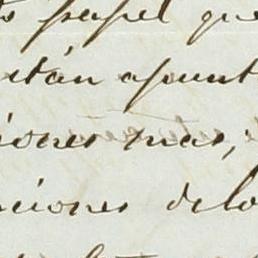 papel que
están apunt
iones mas,
nciones delo